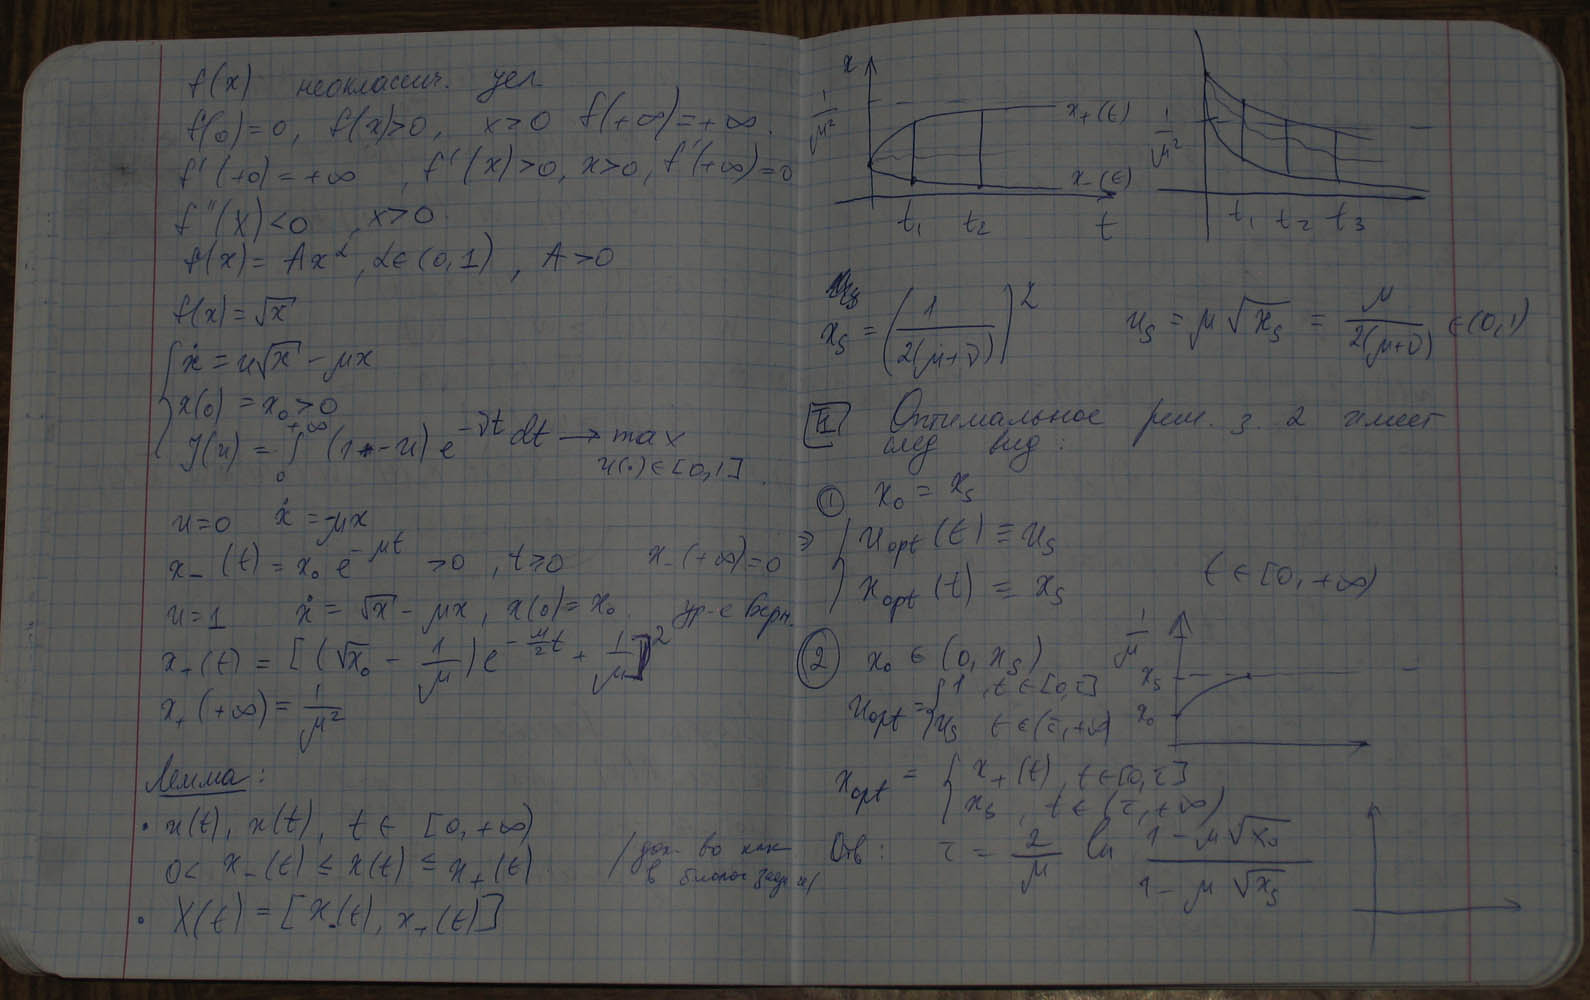 f(x) неоклассич. усл
f(0)=0, f(x)>0, x>0 f(+∞)=+∞.
f'(+0)=+∞, f'(x)>0, x>0, f'(+∞)=0
f''(x)<0, x>0
f(x)= Ax^α, α∈(0,1), A>0
f(x)=√x
ẋ = u√x − μx
x(0) = x₀>0
J(u) = ∫₀^{+∞} (1−u) e^{−νt} dt → max
u(·)∈[0,1]
u=0 ẋ=−μx
x₋(t) = x₀e^{−μt} >0, t≥0 x₋(+∞)=0
u=1 ẋ = √x − μx, x(0)=x₀. ур-е Берн.
x₊(t) = [(√x₀ − 1/μ)e^{−μ/2 t} + 1/μ]²
x₊(+∞)= 1/μ²
Лемма:
• u(t), x(t), t∈ [0,+∞)
0< x₋(t) ≤ x(t) ≤ x₊(t)
/док-во как
в биолог задаче/
• X(t) = [x₋(t), x₊(t)]
x
1/μ²
x₊(t)
x₋(t)
t₁ t₂ t
1/μ²
t₁ t₂ t₃
x_s = (1/(2(μ+ν)))² u_s = μ√x_s = μ/(2(μ+ν)) ∈(0,1)
Оптимальное реш. з. 2 имеет
след вид:
① x₀ = x_s
⇒ { u_opt(t) ≡ u_s
x_opt(t) ≡ x_s t∈[0,+∞)
② x₀ ∈ (0, x_s)
u_opt = { 1, t∈[0,τ]
u_s t∈(τ,+∞)
1/μ
x_s
x₀
x_opt = { x₊(t), t∈[0,τ]
x_s, t∈(τ,+∞)
Отв: τ = 2/μ ln (1−μ√x₀)/(1−μ√x_s)